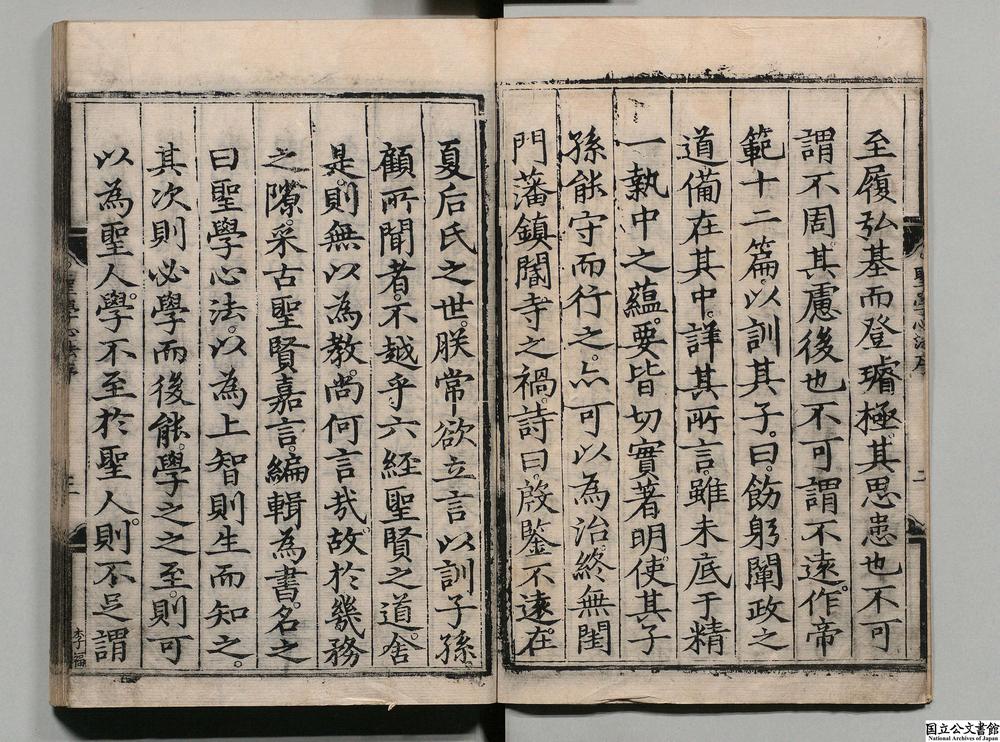 至履弘基而登璿極其思患也不可
謂不周其慮後也不可謂不遠作帝
範十二篇以訓其子曰飭躬闡政之
道備在其中詳其所言雖未底于精
一執中之蘊要皆切實著明使其子
孫能守而行之亦可以為治終無閨
門藩鎮閽寺之禍詩曰殷鑒不遠在
夏后氏之世朕常欲立言以訓子孫
顧所聞者不越乎六經聖賢之道舍
是則無以為教尚何言哉故於幾務
之隙采古聖賢嘉言編輯為書名之
曰聖學心法以為上智則生而知之
其次則必學而後能學之之至則可
以為聖人學不至於聖人則不足謂
聖學心法序
二
聖學心法序
三
李福
国立公文書館
National Archives of Japan